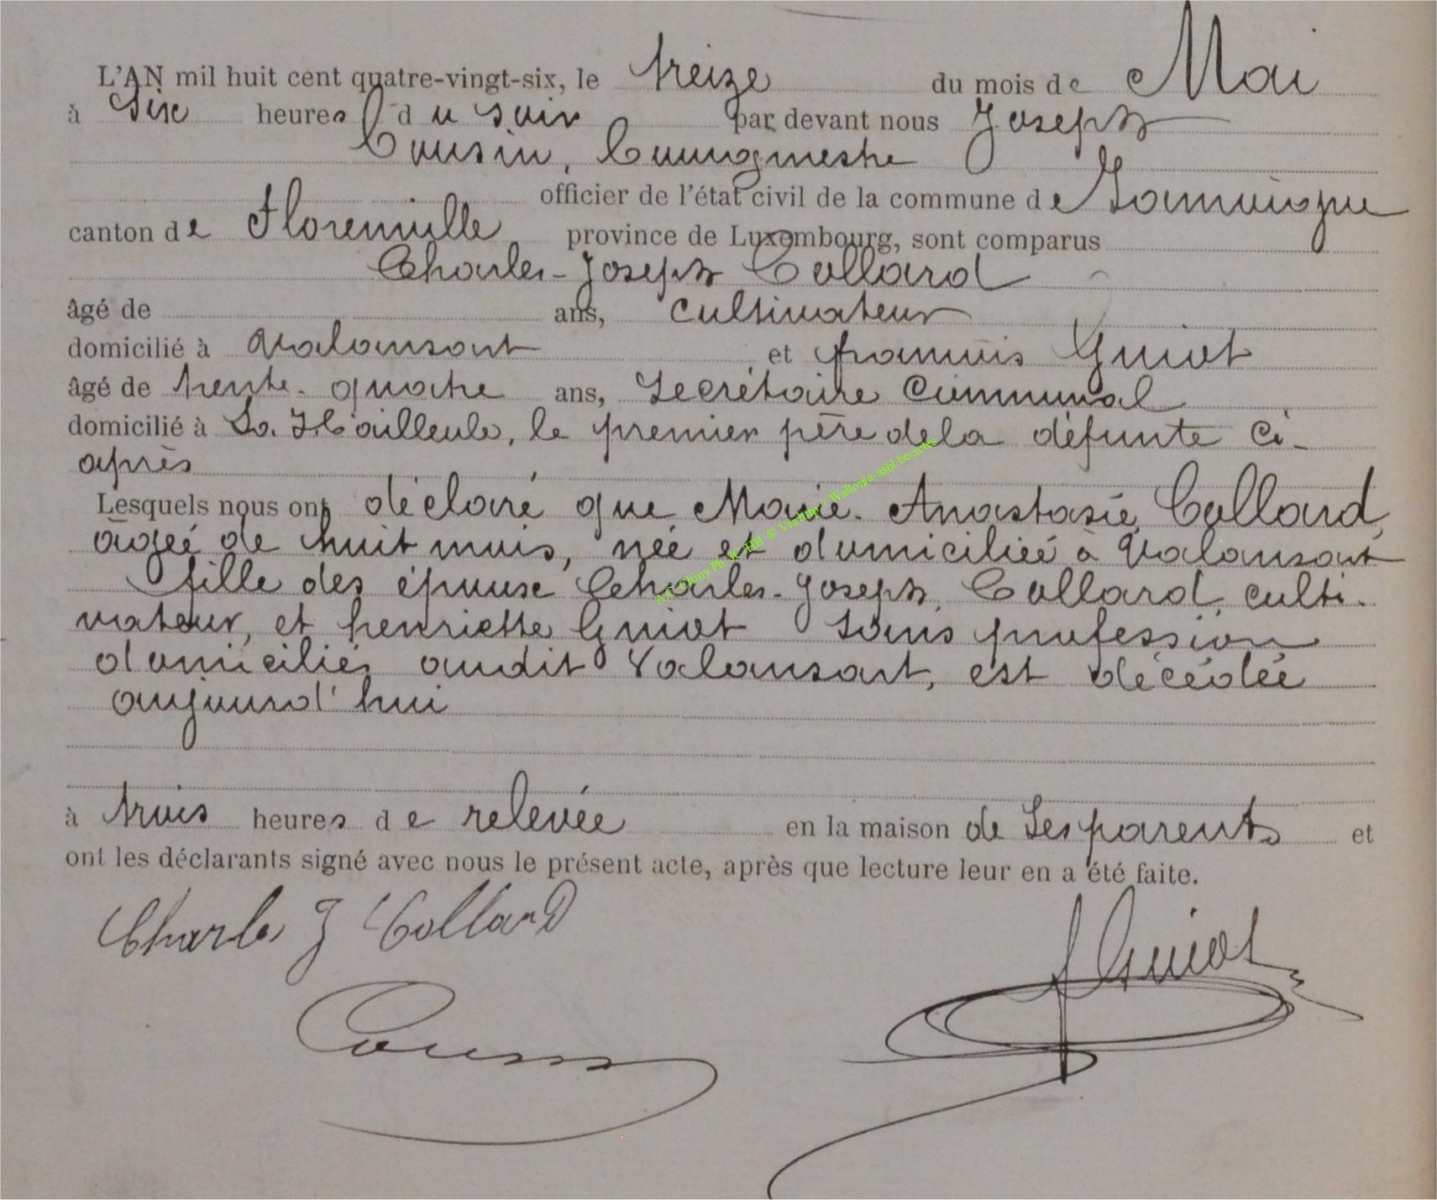 L'AN mil huit cent quatre-vingt-six, le treize du mois de Mai
à six heures du soir par devant nous Joseph
Cousin, Bourgmestre
officier de l'état civil de la commune de Jamoigne
canton de Florenville province de Luxembourg, sont comparus
Charles-Joseph Collard
âgé de ans, cultivateur
domicilié à Valansart et françois Guiot
âgé de trente-quatre ans, Secrétaire Communal
domicilié à La Hailleule, le premier père de la défunte ci-
après
Lesquels nous ont déclaré que Marie-Anastasie Collard,
âgée de huit mois, née et domiciliée à Valansart
fille des époux Charles-Joseph Collard, culti-
vateur, et henriette Guiot sans profession
domiciliés audit Valansart, est décédée
aujourd'hui
à trois heures de relevée en la maison de Ses parents et
ont les déclarants signé avec nous le présent acte, après que lecture leur en a été faite.
Charles J Collard
f Guiot
Cousin